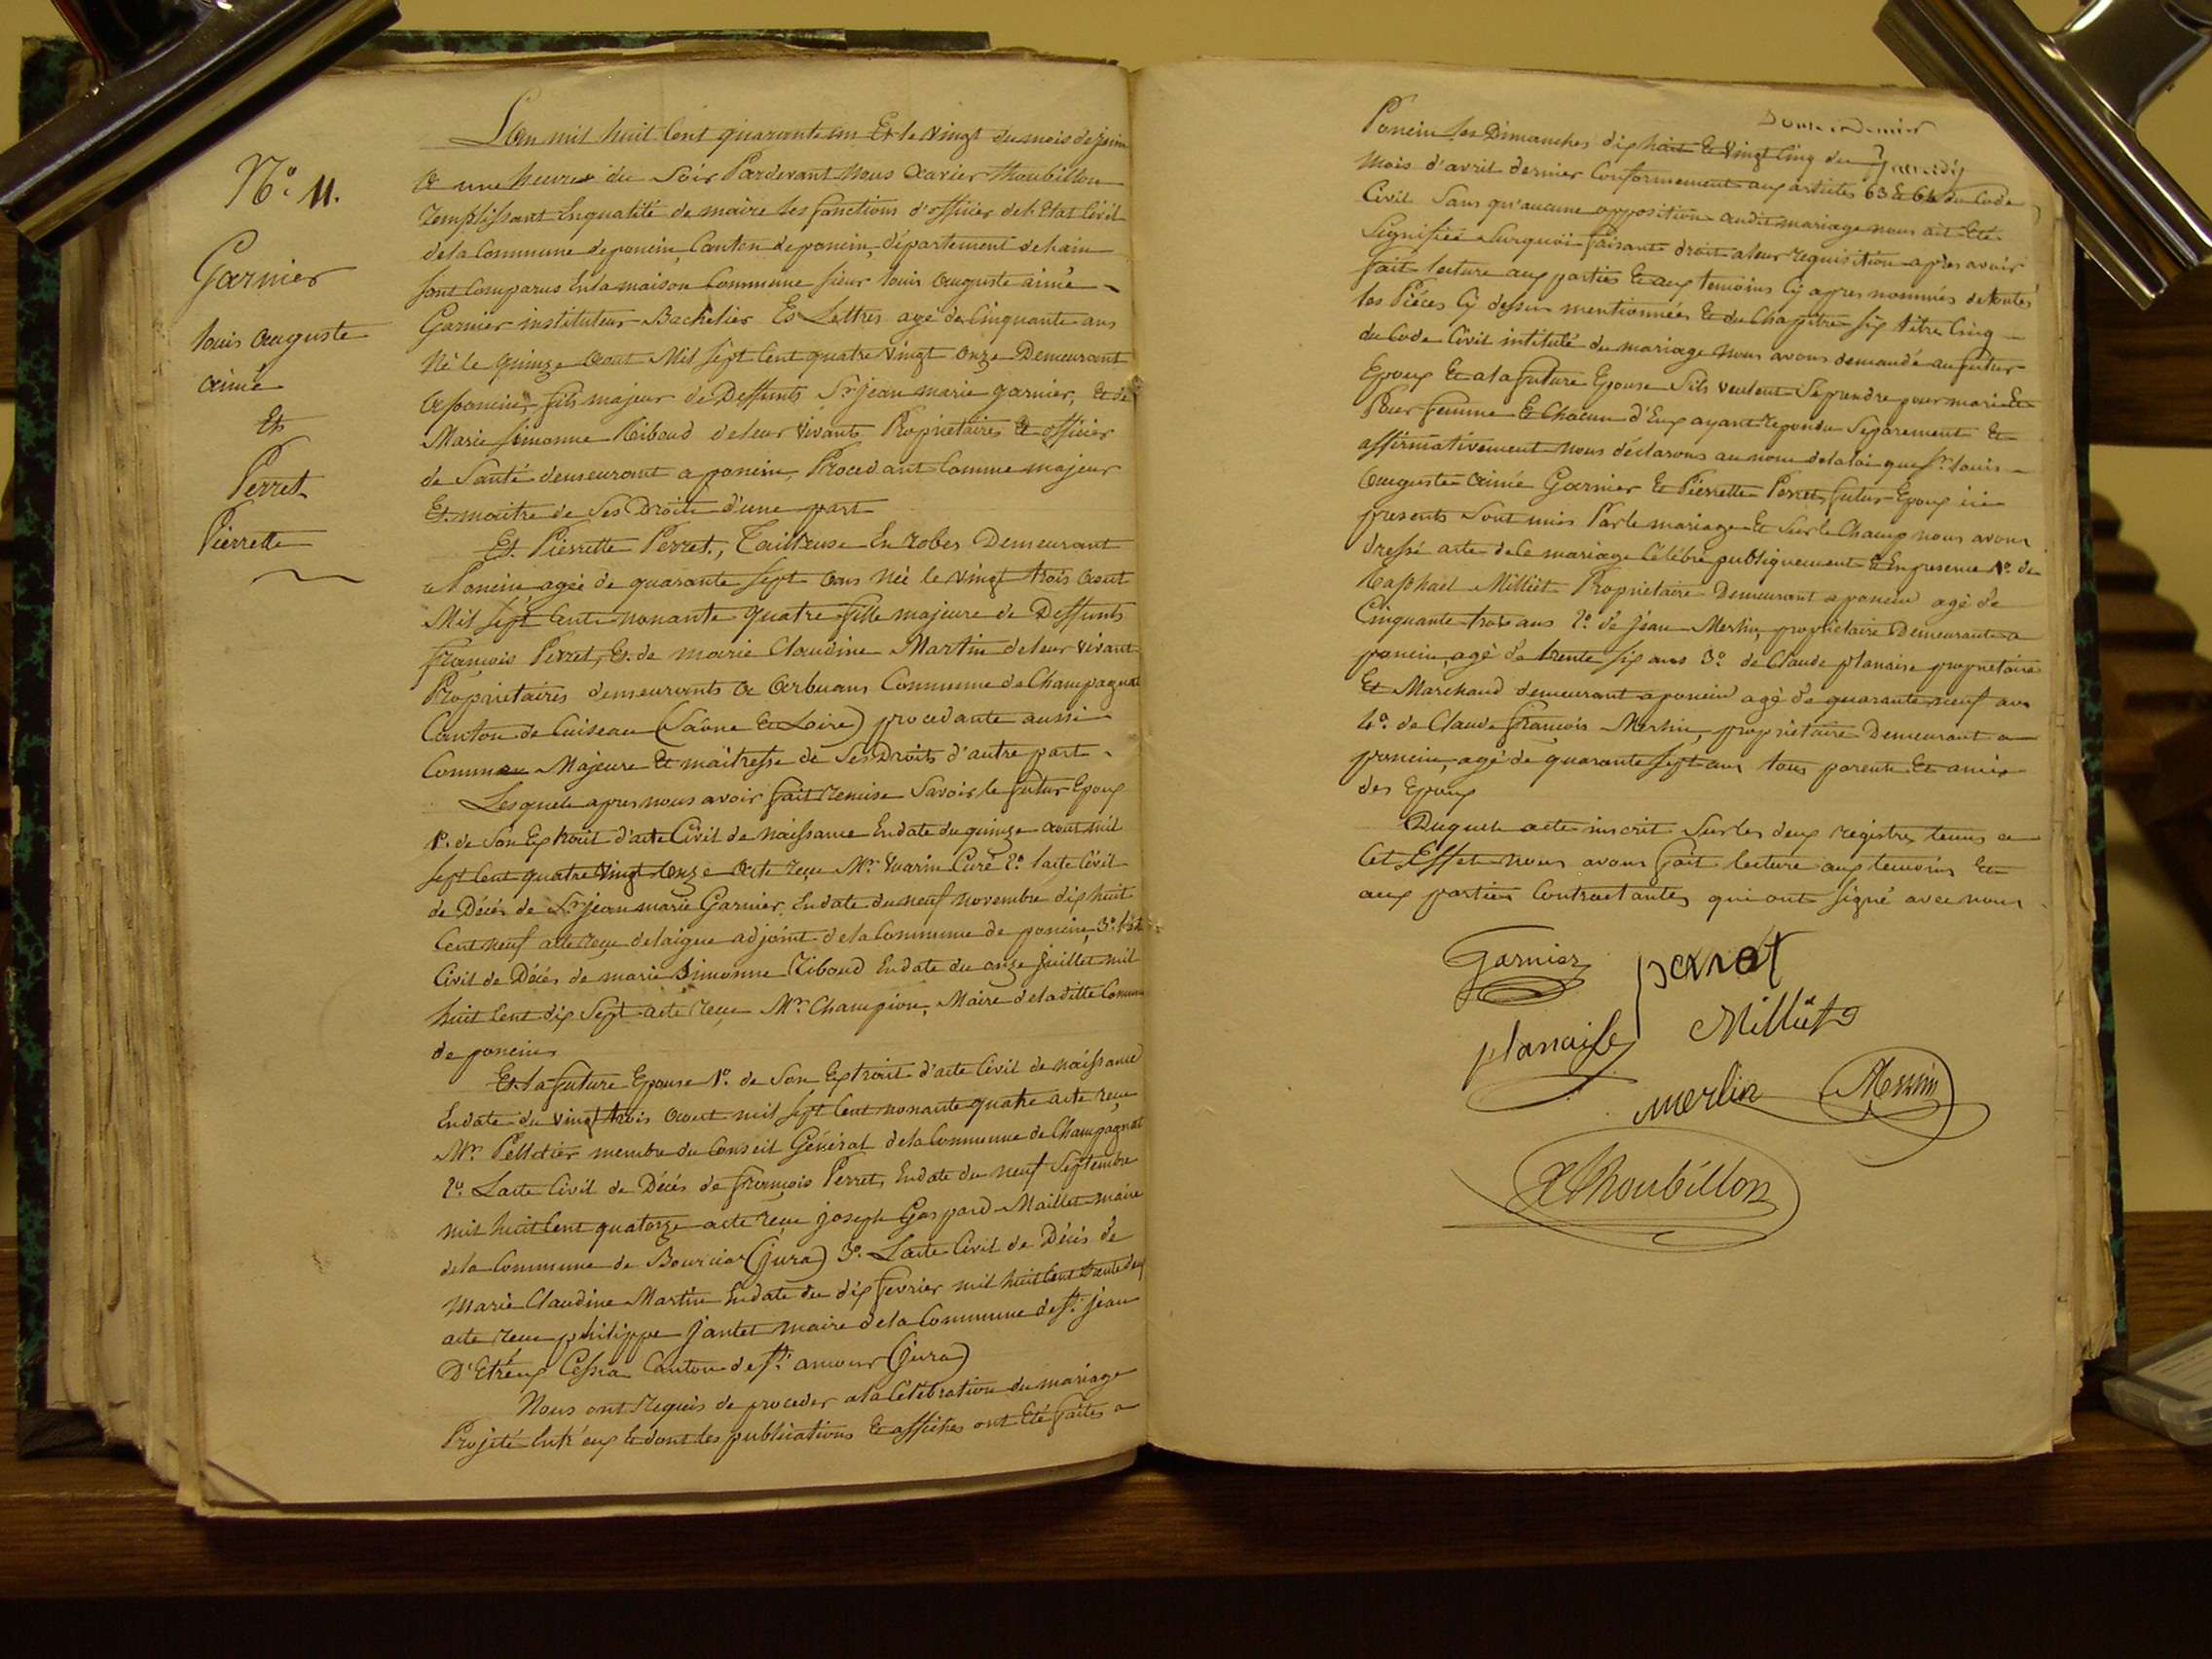 N.° 11.
Garnier
louis auguste
aimé
Et
Perret
Pierrette
L'an mil huit Cent quarante un Et le vingt du mois de juin
a une heure du Soir Pardevant Nous Xavier Thoubillon
remplissant En qualité de maire les fonctions d'officier de l'Etat Civil
de la Commune de poncin, Canton de poncin, département de lain
sont Comparus En la maison Commune sieur louis auguste aimé
Garnier instituteur Bachelier Es Lettres agé de Cinquante ans
Né le quinze aout Mil sept Cent quatre vingt onze Demeurant
a poncin, fils majeur de Deffunts Sr. jean marie garnier, Et de
Marie simonne Riboud de leur vivants Propriétaires Et officier
de Santé demeurant a poncin, Procedant Comme majeur
Et maitre de Ses Droits d'une part
Et Pierrette Perret, Tailleuse En robes Demeurant
a Poncin agée de quarante sept ans Née le vingt trois aout
Mil sept Cent nonante quatre fille majeure de Deffunts
françois Perret, Et de marie Claudine Martin de leur vivant
Propriétaires demeurants a arbuans Commune de Champagnat
Canton de Cuiseau (Saône Et Loire) procedante aussi
Comme Majeure Et maitresse de Ses Droits d'autre part
Lesquels apres nous avoir fait remise Savoir le futur Epoux
1.° de Son Extrait d'acte Civil de naissance En date du quinze aout mil
sept Cent quatre vingt onze acte reçu Mr. Vuarin Curé 2.° l'acte Civil
de Décés de Sr. jean marie Garnier, En date du neuf novembre dix huit
Cent neuf acte reçu delaigue adjoint de la Commune de poncin, 3.°
Civil de Décés de marie Simonne Riboud En date du onze juillet mil
huit Cent dix Sept acte reçu Mr. Champion, Maire de la ditte Commune
de poncin
Et la future Epouse 1.° de Son Extrait d'acte Civil de naissance
En date du vingt trois aout mil sept Cent nonante quatre acte reçu
Mr. Pelletier membre du Conseil Général de la Commune de Champagnat
2.° L'acte Civil de Décés de françois Perret, En date du neuf Septembre
mil huit Cent quatorze acte reçu joseph Gaspard Maillet maire
de la Commune de Bourcia (jura) 3.° L'acte Civil de Décés de
Marie Claudine Martin En date du dix fevrier mil huit Cent trente deux
acte reçu philippe jantet maire de la Commune de St. jean
D'Etreux Cessia Canton de St. amour (jura)
Nous ont requis de proceder a la Célébration du mariage
Projeté Entr'eux Et dont les publications Et affiches ont Eté faites a
Poncin les Dimanches dix huit Et vingt Cinq du
mois d'avril dernier Conformement aux articles 63 & 64 du Code
Civil Sans qu'aucune opposition audit mariage nous ait Eté
Signifiée Surquoi faisant droit a leur requisition apres avoir
fait lecture aux parties Et aux temoins Cy apres nommés de toutes
les Piéces Cy dessus mentionnées Et du Chapitre six titre Cinq
du Code Civil intitulé du mariage Nous avons demandé au futur
Epoux Et a la future Epouse S'ils veulent Se prendre pour mari Et
Pour femme Et Chacun d'Eux ayant repondu Séparement Et
affirmativement Nous déclarons au nom de la loi que Sr. louis
auguste aimé Garnier Et Pierrette Perret, futur Epoux ici
presents Sont unis Par le mariage Et Sur le Champ nous avons
dressé acte de Ce mariage Célébré publiquement Et En presence 1.° de
Raphael Milliet Propriétaire Demeurant a poncin agé de
Cinquante trois ans 2.° de jean Merlin, propriétaire Demeurant a
poncin, agé de trente six ans 3.° de Claude planaise propriétaire
Et Marchand demeurant a poncin agé de quarante neuf ans
4.° de Claude françois Merlin, propriétaire Demeurant a
poncin, agé de quarante sept ans tous parents Et amis
des Epoux
Duquel acte inscrit Sur les deux registres tenus a
Cet Effet nous avons fait lecture aux temoins Et
aux parties Contractantes qui ont signé avec nous
Garnier perret
planaise Milliet
merlin Merlin
X Thoubillon